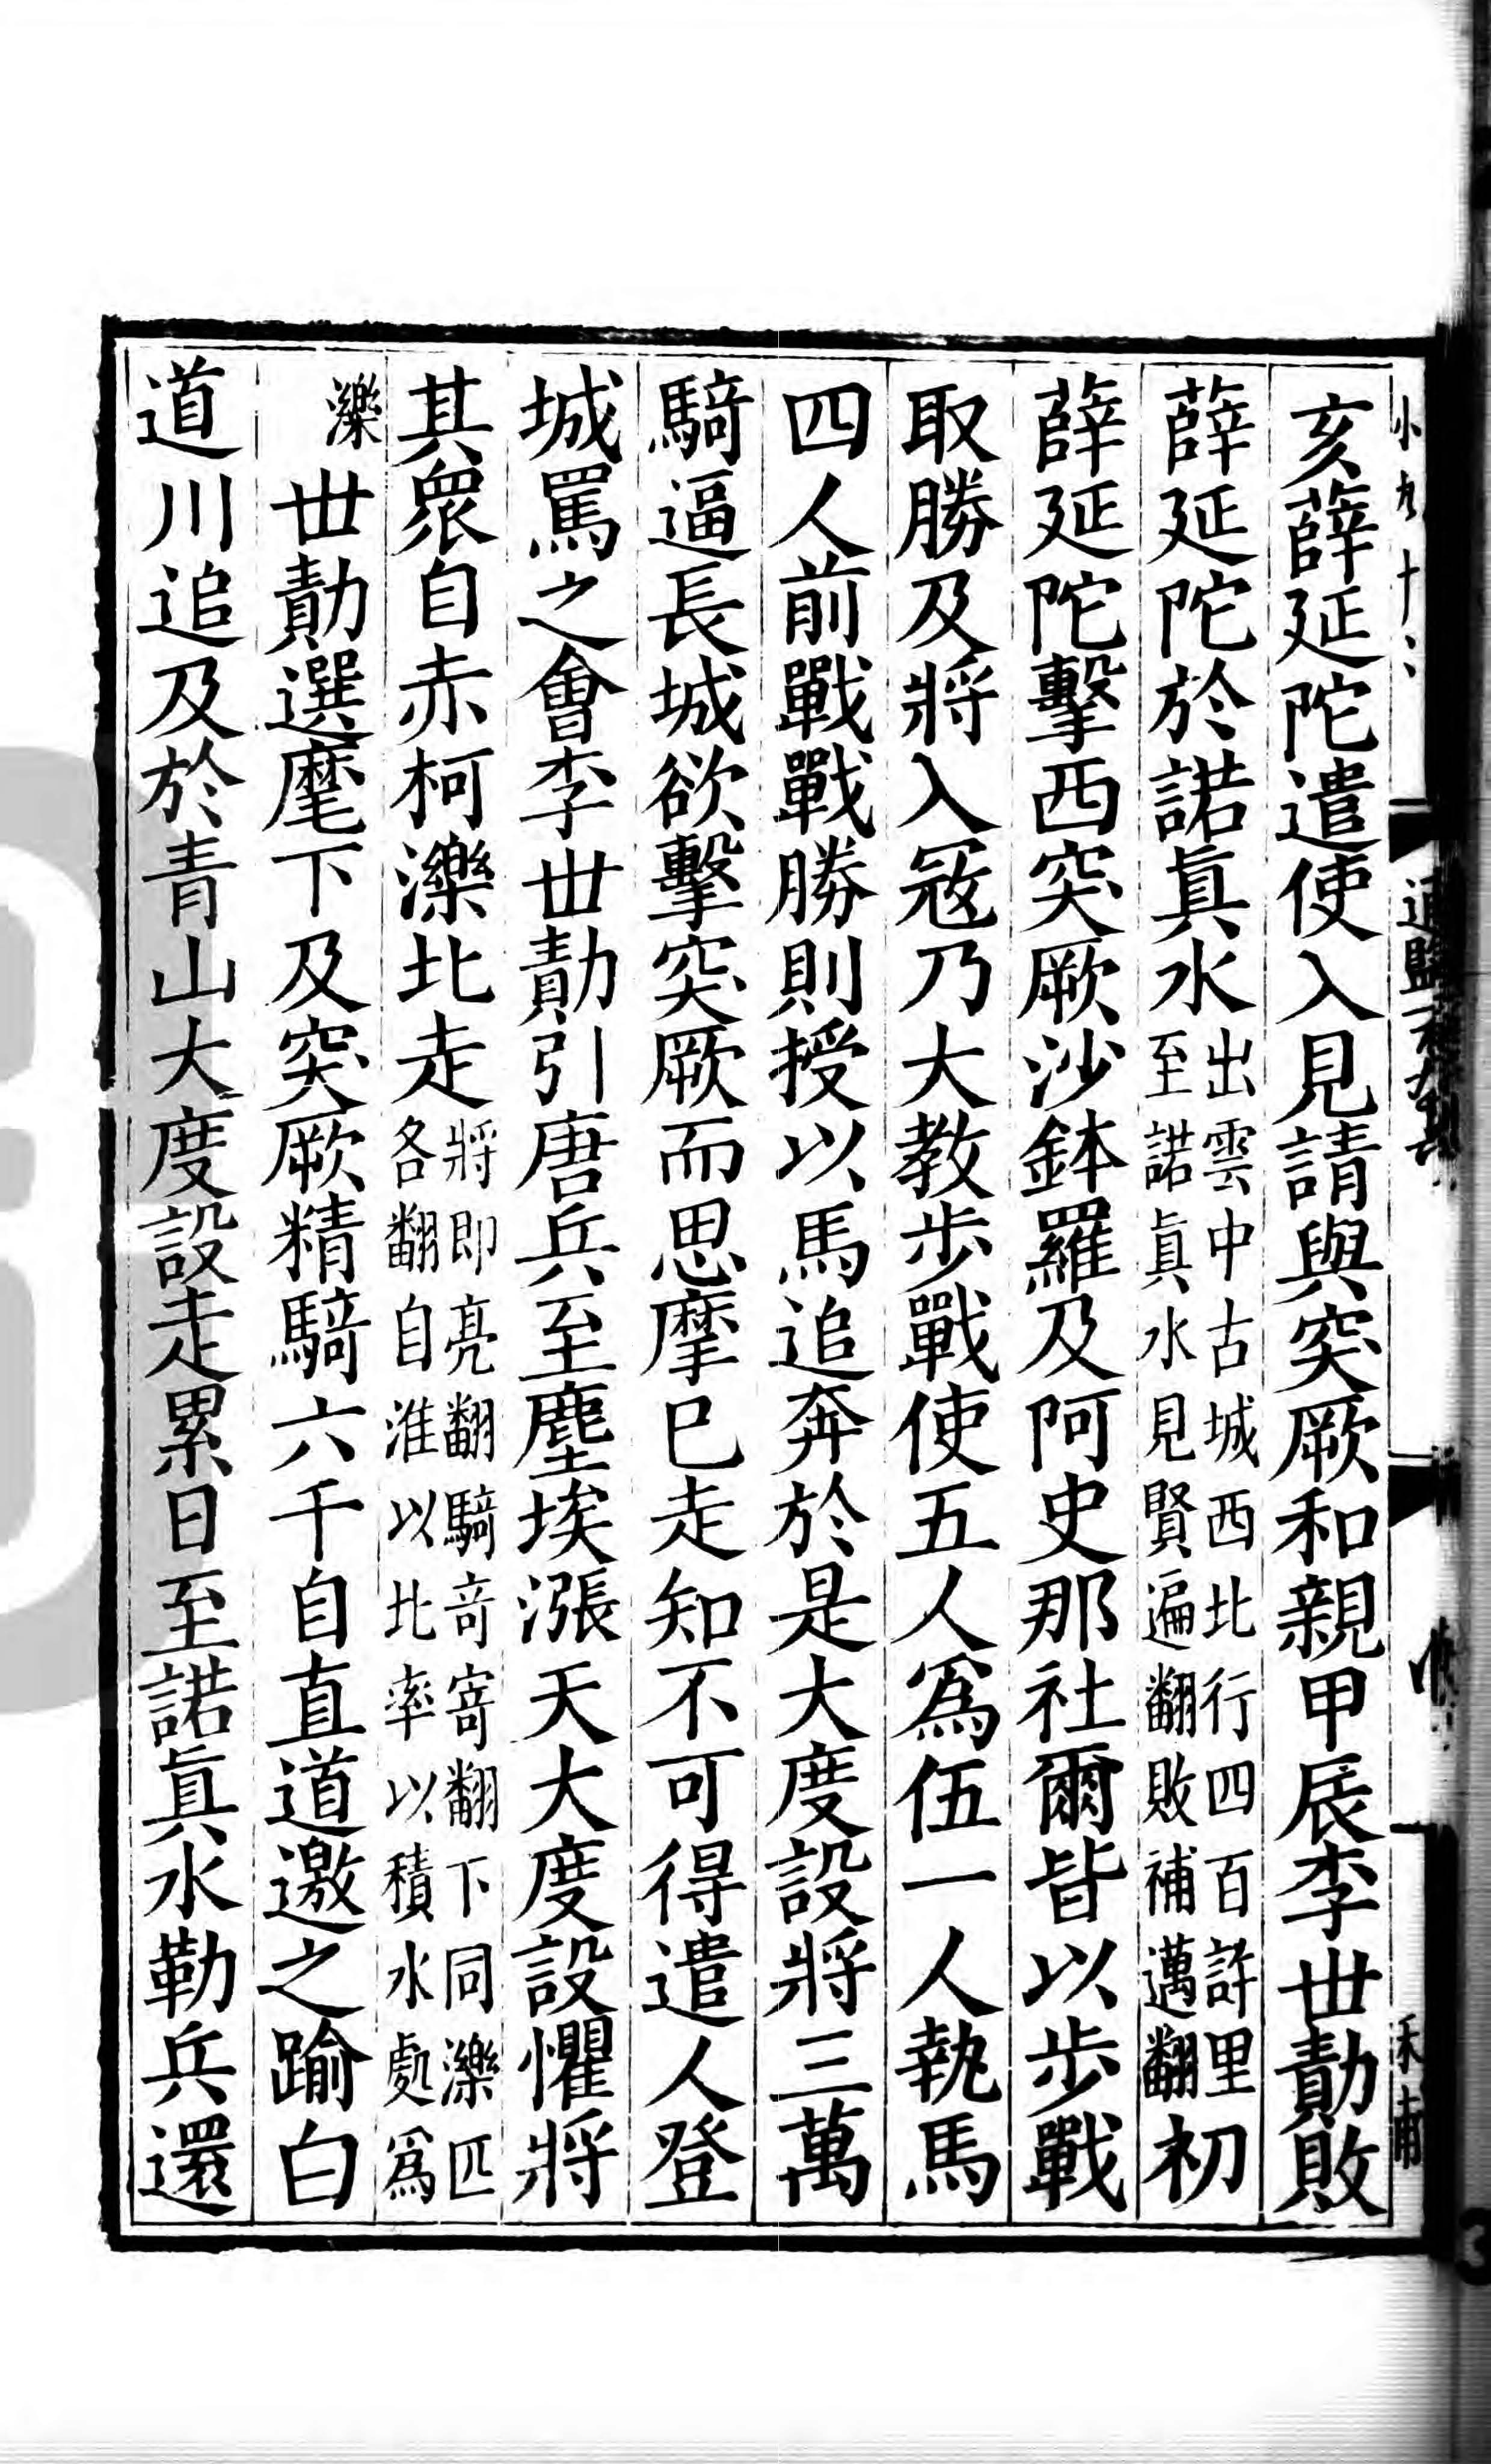 亥薛延陀遣使入見請與突厥和親甲辰李丗勣敗
薛延陀於諾眞水出雲中古城西北行四百許里至諾眞水見賢遍翻敗補邁翻初
薛延陀擊西突厥沙鉢羅及阿史那社爾皆以步戰
取勝及將入寇乃大教步戰使五人爲伍一人執馬
四人前戰戰勝則授以馬追奔於是大度設將三萬
騎逼長城欲擊突厥而思摩已走知不可得遣人登
城罵之會李丗勣引唐兵至塵埃漲天大度設懼將
其衆自赤柯濼北走將即亮翻騎奇寄翻下同濼匹各翻自淮以北率以積水處爲
濼丗勣選麾下及突厥精騎六千自直道邀之踰白
道川追及於青山大度設走累日至諾眞水勒兵還